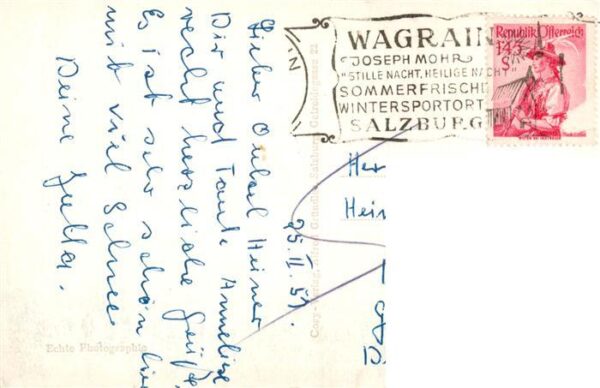 WAGRAIN
JOSEPH MOHR
"STILLE NACHT, HEILIGE NACHT"
SOMMERFRISCHE
WINTERSPORTORT
SALZBURG
Republik Österreich
1·45
S
25. II. 51.
Lieber Onkel Heiner
Dir und Tante Annelise
recht herzliche Grüße.
Es ist sehr schön hier
mit viel Schnee
Deine Jutta.
Her
Hein
Echte Photographie